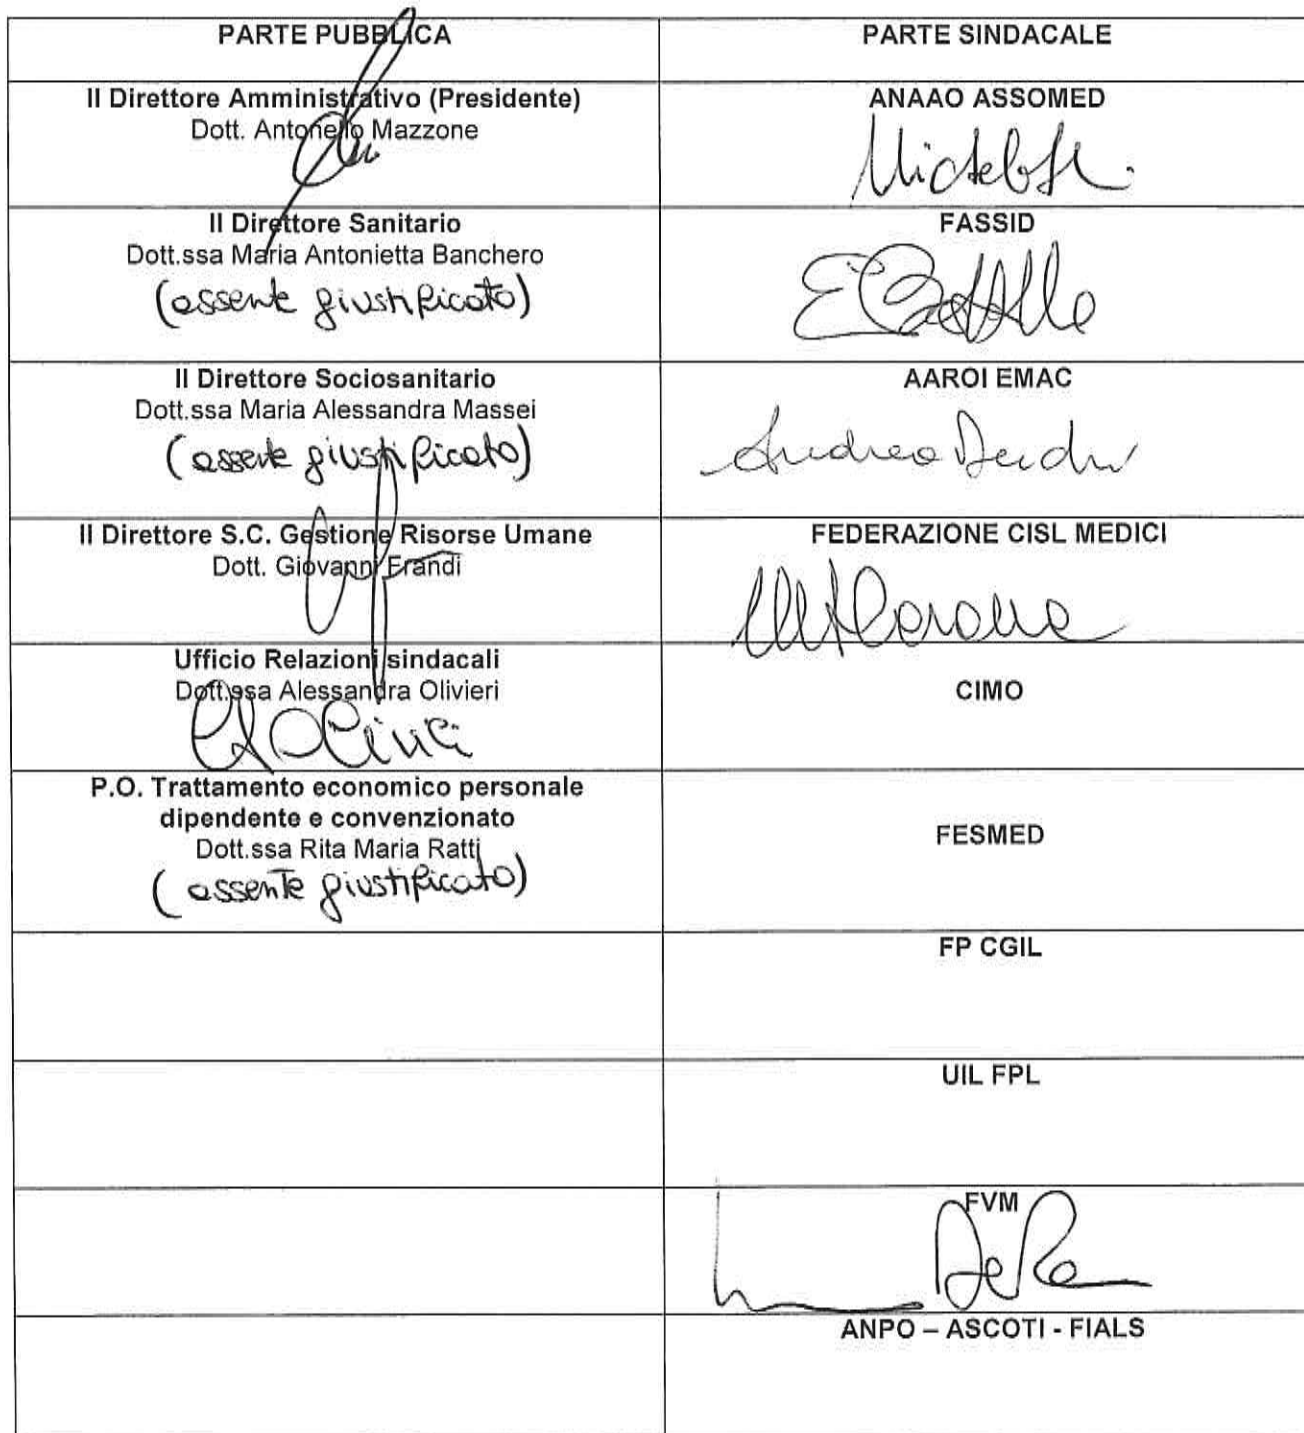 PARTE PUBBLICA
PARTE SINDACALE
Il Direttore Amministrativo (Presidente)
Dott. Antonello Mazzone
ANAAO ASSOMED
Il Direttore Sanitario
Dott.ssa Maria Antonietta Banchero
(assente giustificato)
FASSID
Il Direttore Sociosanitario
Dott.ssa Maria Alessandra Massei
(assente giustificato)
AAROI EMAC
Il Direttore S.C. Gestione Risorse Umane
Dott. Giovanni Frandi
FEDERAZIONE CISL MEDICI
Ufficio Relazioni sindacali
Dott.ssa Alessandra Olivieri
CIMO
P.O. Trattamento economico personale
dipendente e convenzionato
Dott.ssa Rita Maria Ratti
(assente giustificato)
FESMED
FP CGIL
UIL FPL
FVM
ANPO – ASCOTI - FIALS